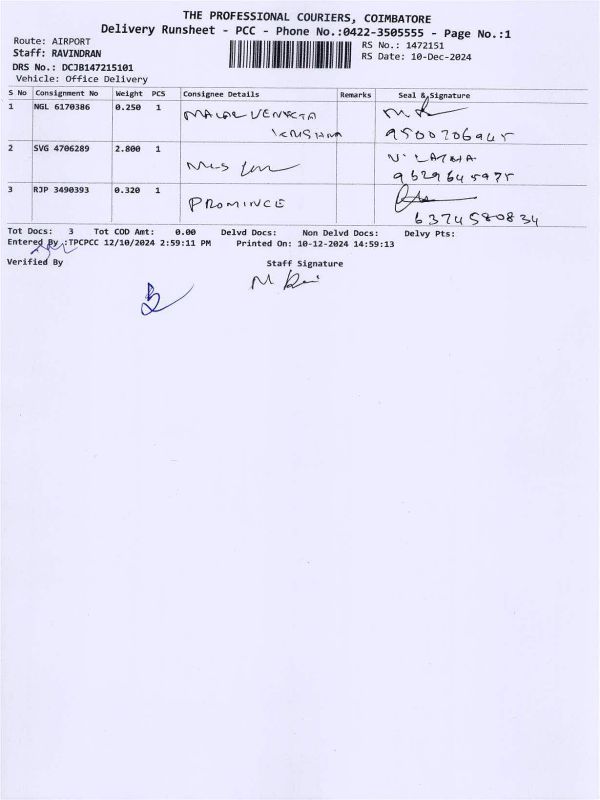 THE PROFESSIONAL COURIERS, COIMBATORE
Delivery Runsheet - PCC - Phone No.:0422-3505555 - Page No.:1
Route: AIRPORT
RS No.: 1472151
Staff: RAVINDRAN
RS Date: 10-Dec-2024
DRS No.: DCJB147215101
Vehicle: Office Delivery
S No Consignment No Weight PCS Consignee Details Remarks Seal & Signature
1 NGL 6170386 0.250 1 MALAR VENKATA
KRISHNA 9500706945
2 SVG 4706289 2.800 1 V. LATHA
9629645975
3 RJP 3490393 0.320 1 PROMINCE
6374580834
Tot Docs: 3 Tot COD Amt: 0.00 Delvd Docs: Non Delvd Docs: Delvy Pts:
Entered By :TPCPCC 12/10/2024 2:59:11 PM Printed On: 10-12-2024 14:59:13
Verified By Staff Signature